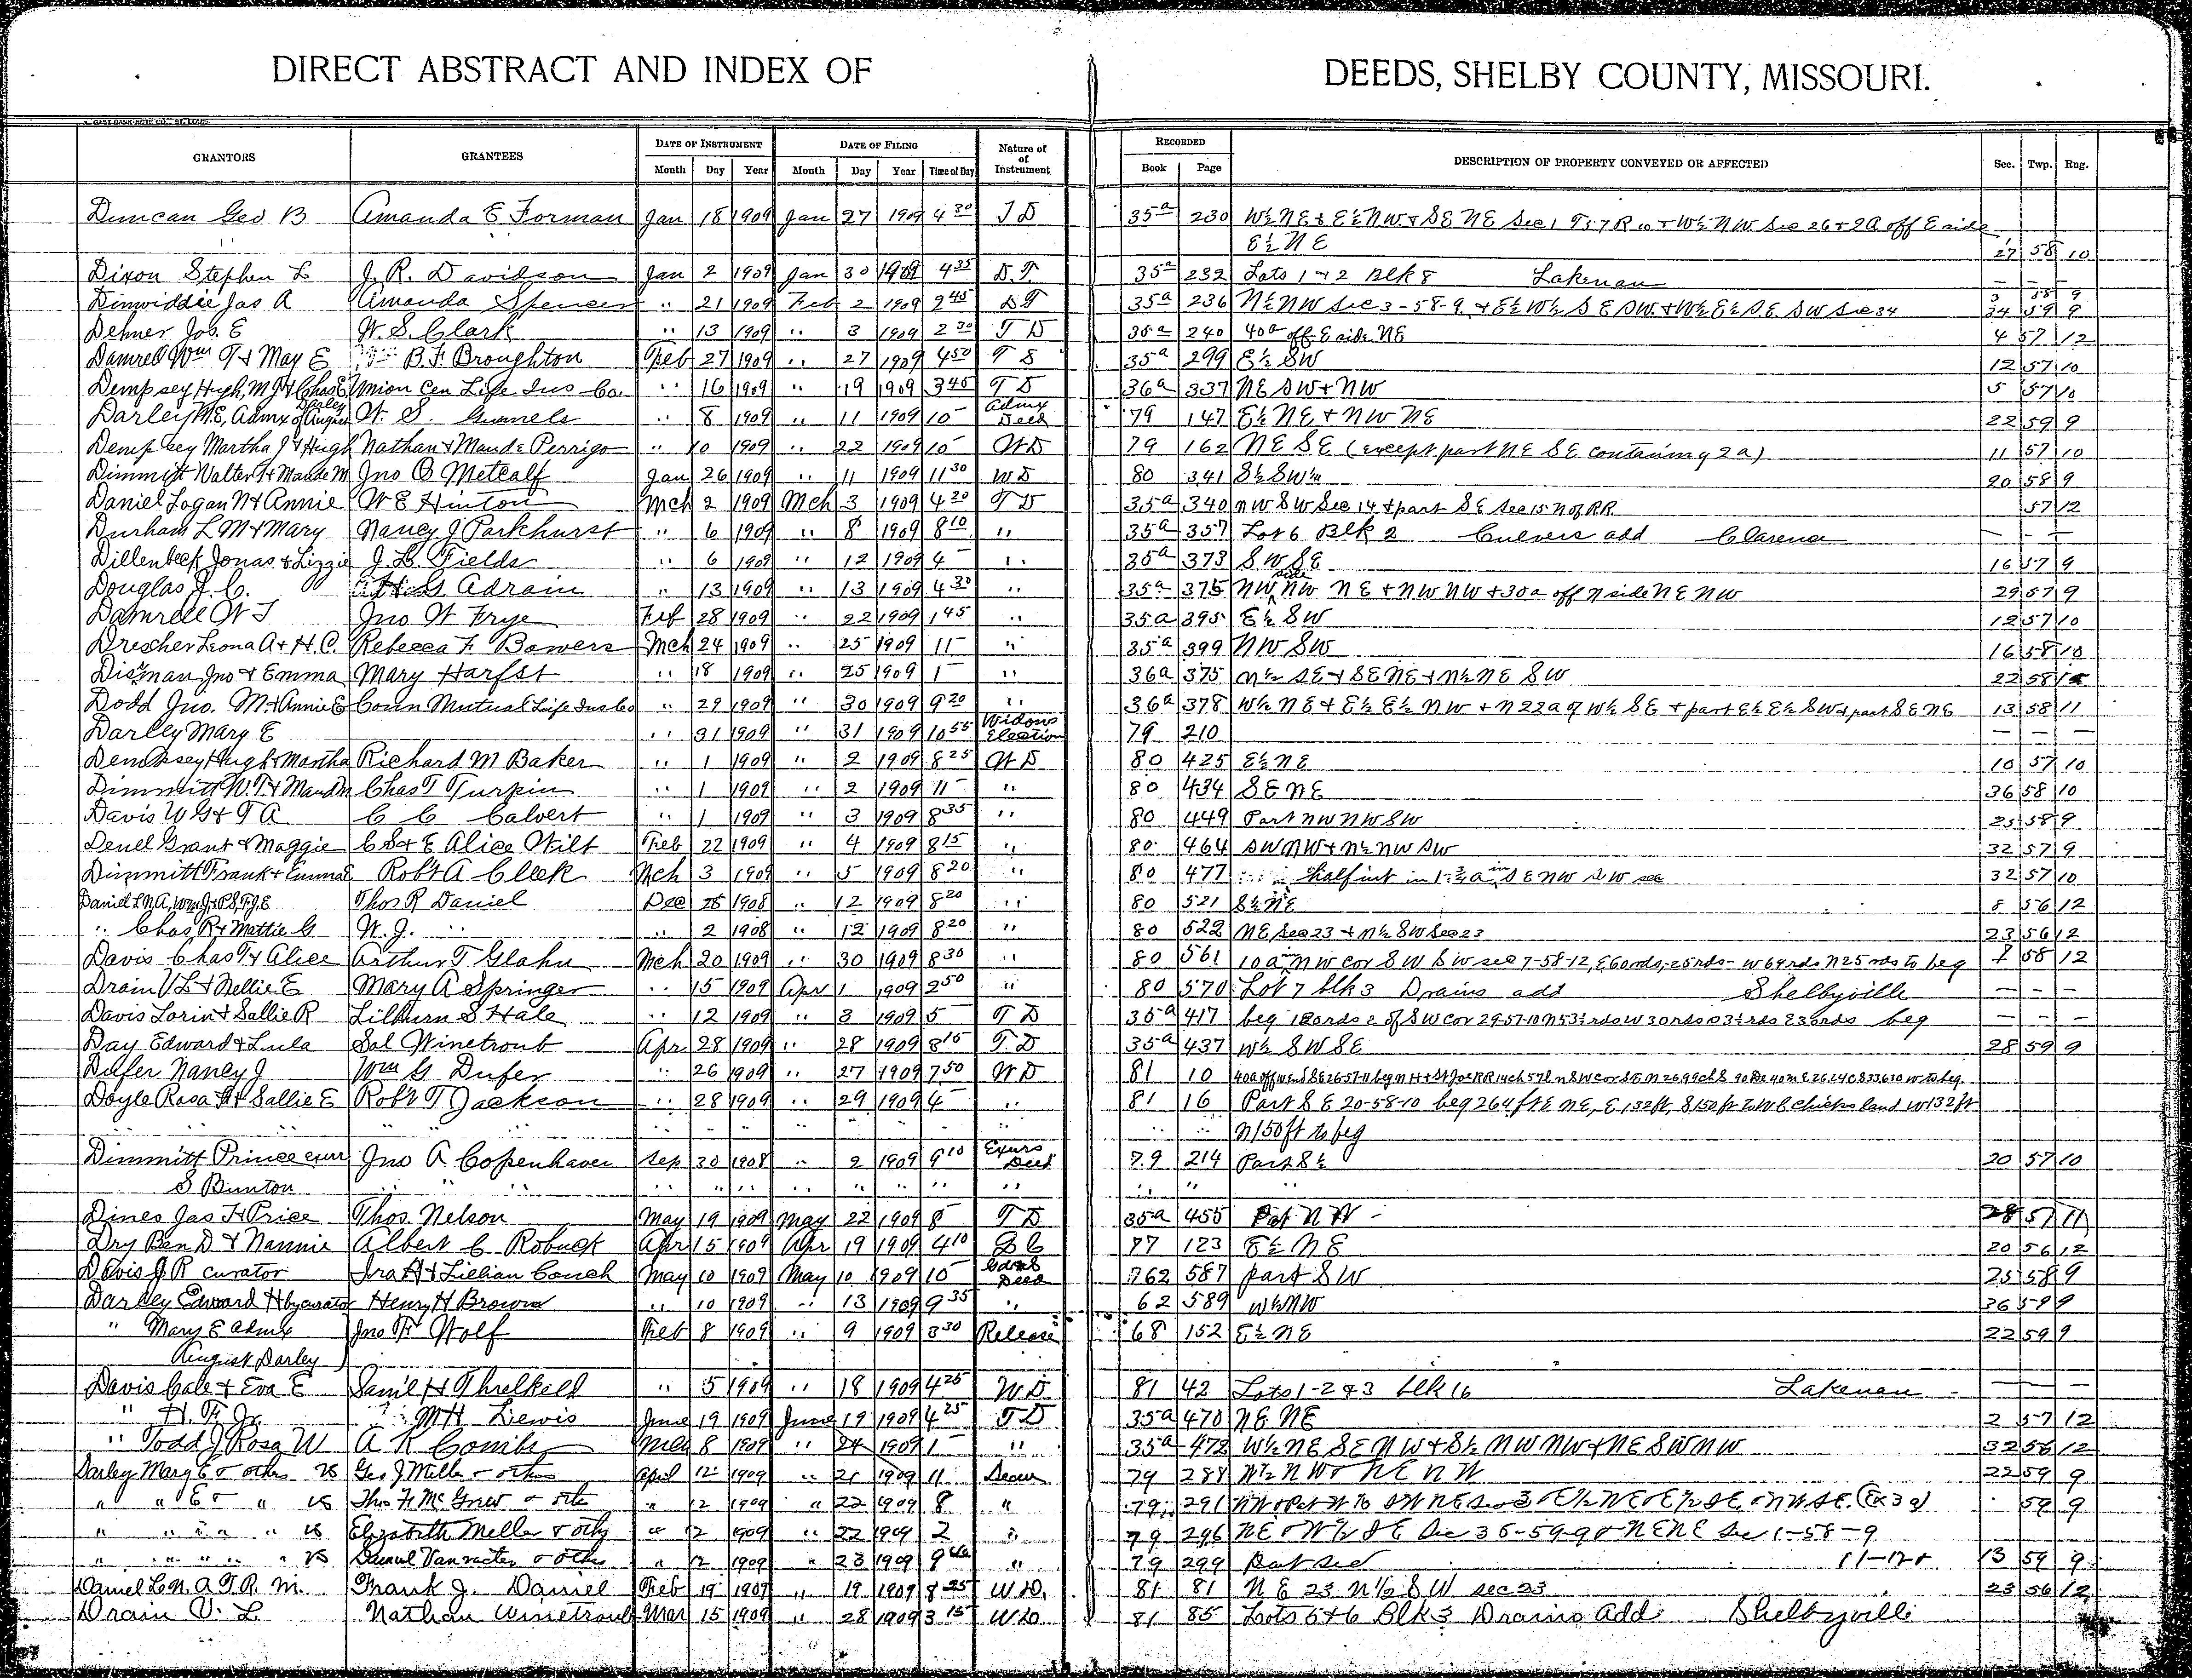 DIRECT ABSTRACT AND INDEX OF DEEDS, SHELBY COUNTY, MISSOURI.
GRANTORS GRANTEES DATE OF INSTRUMENT DATE OF FILING Nature of of Instrument RECORDED DESCRIPTION OF PROPERTY CONVEYED OR AFFECTED Sec. Twp. Rng.
Month Day Year Month Day Year Time of Day Book Page
Duncan Geo B Amanda E Forman Jan 18 1909 Jan 27 1909 4 30 T D 35a 230 W½ NE + E½ NW + SE NE Sec 1 T57 R10 + W½ NW Sec 26 + 2A off E side
" E½ NE 27 58 10
Dixon Stephen L J. R. Davidson Jan 2 1909 Jan 30 1909 4 35 D.T. 35a 232 Lots 1 + 2 Blk 8 Lakenan — — —
Dinwiddie Jas A Amanda Spencer " 21 1909 Feb 2 1909 9 45 D T 35a 236 N½ NW Sec 3-58-9 + E½ W½ S E SW + W½ E½ S.E. SW Sec 34 3 58 9 34 59 9
Dehner Jos. E W. S. Clark " 13 1909 " 3 1909 2 30 T D 35a 240 40a off E side NE 4 57 12
Damrell Wm T + May E B. F. Broughton Feb 27 1909 " 27 1909 4 50 T S 35a 299 E½ SW 12 57 10
Dempsey Hugh, M J + Chas E Union Cen Life Ins Co. " 16 1909 " 19 1909 3 45 T D 36a 337 NE SW + NW 5 57 10
Darley M. E, Admx of August Darley W. S. Gunnels " 8 1909 " 11 1909 10 – Admx Deed 79 147 E½ NE + NW NE 22 59 9
Dempsey Martha J + Hugh Nathan + Maude Perrigo " 10 1909 " 22 1909 10 – W D 79 162 NE SE (except part NE SE containing 2a) 11 57 10
Dimmitt Walter T + Maude M Jno B Metcalf Jan 26 1909 " 11 1909 11 30 W D 80 341 S½ SW¼ 20 58 9
Daniel Logan N + Annie W E Hinton Mch 2 1909 Mch 3 1909 4 20 T D 35a 340 NW SW Sec 14 + part SE Sec 15 N of RR 57 12
Durham L M + Mary Nancy J Parkhurst " 6 1909 " 8 1909 8 10 " 35a 357 Lot 6 Blk 2 Culvers add Clarence — — —
Dillenbeck Jonas + Lizzie J. L. Fields " 6 1909 " 12 1909 4 – " 35a 373 SW SE 16 57 9
Douglas J. C. G Adrain " 13 1909 " 13 1909 4 30 " 35a 375 NW side NW NE + NW NW + 30a off N side NE NW 29 57 9
Damrell W T Jno W Frye Feb 28 1909 " 22 1909 1 45 " 35a 395 E½ SW 12 57 10
Drescher Leona A + H. C. Rebecca F Bowers Mch 24 1909 " 25 1909 11 – " 35a 399 NW SW 16 58 10
Disman Jno + Emma Mary Harfst " 18 1909 " 25 1909 1 – " 36a 375 N½ SE + SE NE + N½ NE SW 22 58
Dodd Jno. M + Annie E Conn Mutual Life Ins Co " 29 1909 " 30 1909 9 20 " 36a 378 W½ NE + E½ E½ NW + N 22a of W½ SE + part E½ E½ SW + part SE NE 13 58 11
Darley Mary E " 31 1909 " 31 1909 10 55 Widows Election 79 210 — — —
Dempsey Hugh + Martha Richard M Baker " 1 1909 " 2 1909 8 25 W D 80 425 E½ NE 10 57 10
Dimmitt W. T + Maud M Chas T Turpin " 1 1909 " 2 1909 11 – " 80 434 SE NE 36 58 10
Davis W G + T A C C Calvert " 1 1909 " 3 1909 8 35 " 80 449 Part NW NW SW 25 58 9
Deuel Grant + Maggie C S + E Alice Wilt Feb 22 1909 " 4 1909 8 15 " 80 464 SW NW + N½ NW SW 32 57 9
Dimmitt Frank + Emma E Robt A Cleek Mch 3 1909 " 5 1909 8 20 " 80 477 half int in 1¾ a in SE NW SW sec 32 57 10
Daniel L N A, Wm J + P S, T J E Thos R Daniel Dec 25 1908 " 12 1909 8 20 " 80 521 S½ NE 8 56 12
" Chas R + Mattie G W. J. " " 2 1908 " 12 1909 8 20 " 80 522 NE Sec 23 + N½ SW Sec 23 23 56 12
Davis Chas T + Alice Arthur T Glahn Mch 20 1909 " 30 1909 8 30 " 80 561 10a in NW cor SW SW sec 7-58-12, E 60 rds, - 25 rds - W 64 rds N 25 rds to beg 7 58 12
Drain V L + Nellie E Mary A Springer " 15 1909 Apr 1 1909 2 50 " 80 570 Lot 7 blk 3 Drains add Shelbyville — — —
Davis Lorin + Sallie R Lilburn S Hale " 12 1909 " 3 1909 5 – T D 35a 417 beg 120 rds E of SW cor 29-57-10 N 53½ rds W 30 rds S 3½ rds E 30 rds beg — — —
Day Edward + Lula Sol Winetrout Apr 28 1909 " 28 1909 8 15 T. D 35a 437 W½ SW SE 28 59 9
Dufer Nancy J Wm G Dufer " 26 1909 " 27 1909 7 50 W D 81 10
Doyle Rosa A + Sallie E Robt T Jackson " 28 1909 " 29 1909 4 – " 81 16 Part SE 20-58-10 beg 264 ft E NE, E 132 ft, S 150 ft to W C Chicks land W 132 ft
" " " " " " " " " " " " N 150 ft to beg
Dimmitt Prince exr Jno A Copenhaver Sep 30 1908 " 2 1909 9 10 Exors Deed 79 214 Part S½ 20 57 10
S Bunton " " " " " " " " " " "
Dines Jas H Price Thos. Nelson May 19 1909 May 22 1909 8 – T D 35a 455 Part N W 28 57 11
Dry Ben D + Nannie Albert C Robuck Apr 15 1909 Apr 19 1909 4 10 Q C 77 123 E½ NE 20 56 12
Davis J R curator Ira A + Lillian Couch May 10 1909 May 10 1909 10 – Deed 762 587 part SW 25 58 9
Darley Edward H by curator Henry H Brown " 10 1909 " 13 1909 9 35 " 62 589 W½ NW 36 59 9
" Mary E admx Jno F Wolf Feb 8 1909 " 9 1909 3 30 Release 68 152 E½ NE 22 59 9
August Darley
Davis Cale + Eva E Saml H Threlkeld " 5 1909 " 18 1909 4 25 W. D 81 42 Lots 1-2 & 3 blk 16 Lakenan — —
" H. F. Jr. M H Lewis June 19 1909 June 19 1909 4 25 T D 35a 470 NE NE 2 57 12
" Todd J Rosa W A R Combs May 8 1909 " 24 1909 1 – " 35a 472 W½ NE SE NW + S½ NW NW + NE SW NW 32 56 12
Darley Mary E + others vs Geo J Miller + others April 12 1909 " 21 1909 11 Decree 79 288 W½ NW + NE NW 22 59 9
" " E + " vs Thos F McGrew + others " 12 1909 " 22 1909 8 " 79 291 59 9
" " " " " vs Elizabeth Miller + others " 12 1909 " 22 1909 2 " 79 296 NE + W½ SE Sec 36-59-9 + NE NE Sec 1-58-9
" " " " " vs Samuel Vanvacter + others " 12 1909 " 23 1909 9 " 79 299 Part sec 11-12 + 13 59 9
Daniel L. N. A T. R. M. Frank J. Daniel Feb 19 1909 " 19 1909 8 25 W D. 81 81 NE 23 N½ SW sec 23 23 56 12
Drain V. L. Nathan Winetroub Mar 15 1909 " 28 1909 3 15 W D. 81 85 Lots 5 + 6 Blk 3 Drains Add. Shelbyville